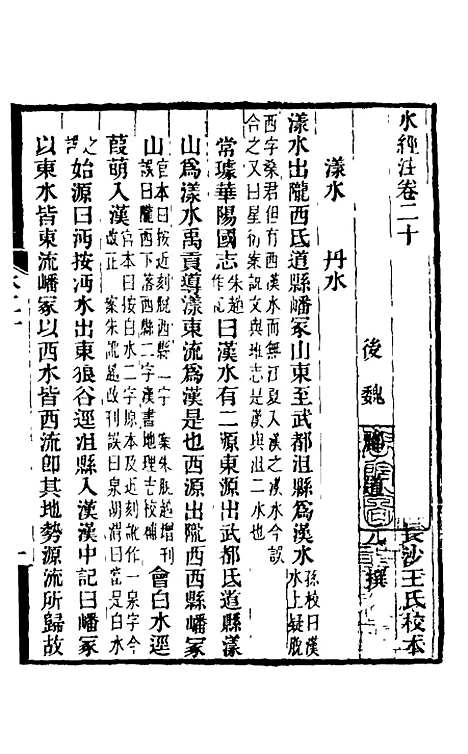 水經注卷二十
後魏酈道元撰 長沙王氏校本
漾水 丹水
漾水出隴西氐道縣嶓冢山東至武都沮縣爲漢水孫校曰漢水上疑脫
西字桑君但有西漢水而無江夏入漢之漢水今誤
合之又曰星衍案説文與班志是漢與沮二水也
常璩華陽國志朱趙作記曰漢水有二源東源出武都氐道縣漾
山爲漾水禹貢導漾東流爲漢是也西源出隴西西縣嶓冢
山官本曰按近刻脫西縣二字 案朱脫趙增刊誤曰隴西下落西縣二字漢書地理志校補會白水逕
葭萌入漢官本曰按白水二字原本及近刻訛作一泉字今改正 案朱訛趙改刊誤曰泉胡渭曰當是白水
之誤始源曰沔按沔水出東狼谷逕沮縣入漢漢中記曰嶓冢
以東水皆東流嶓冢以西水皆西流卽其地勢源流所歸故